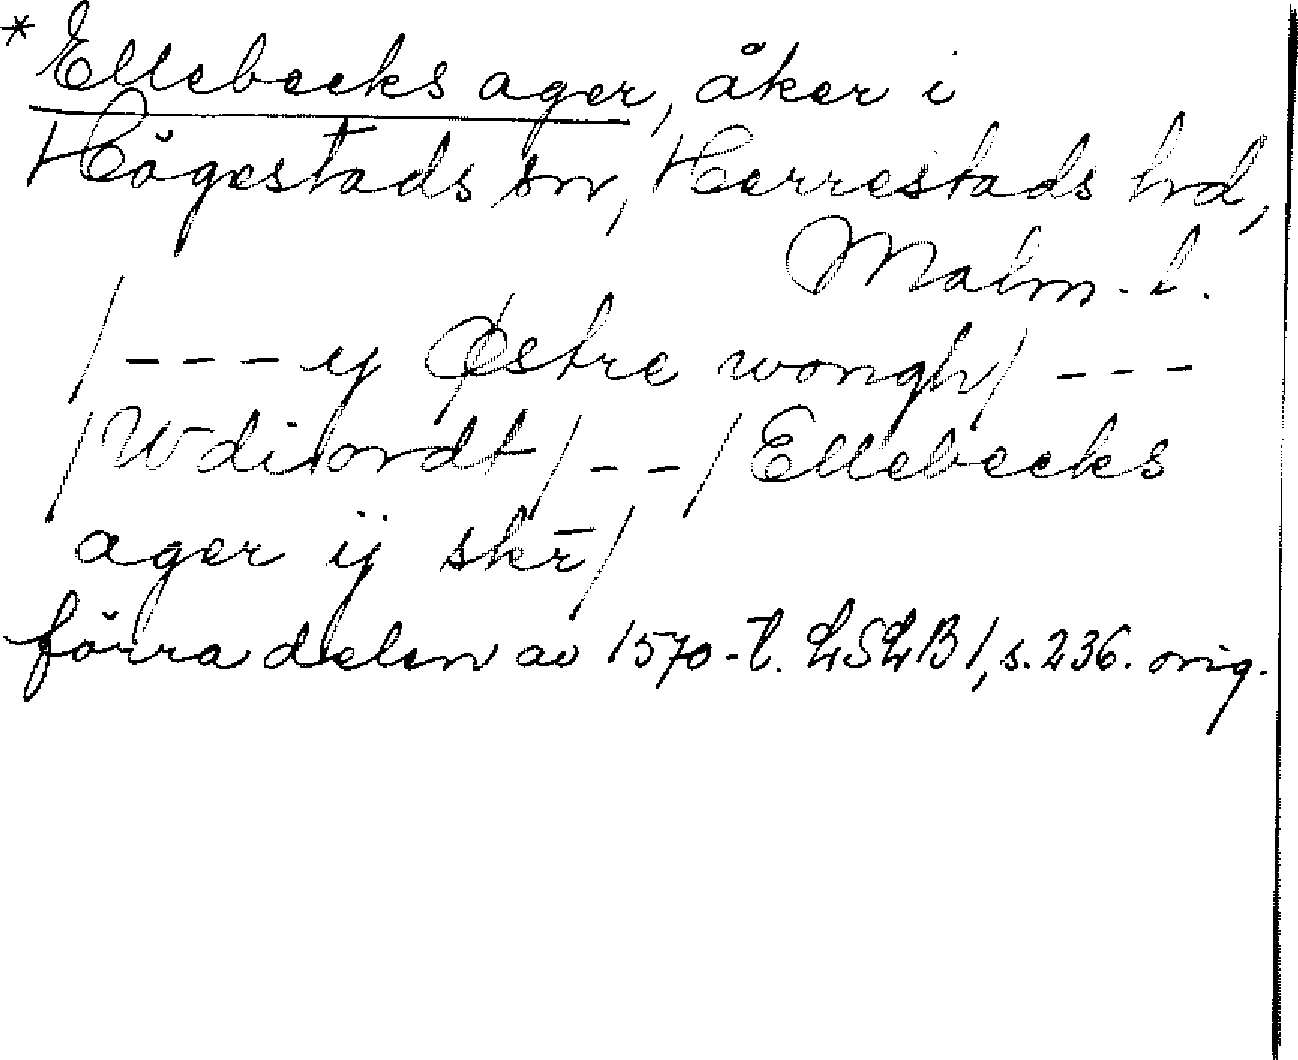 * Ellebecks ager, åker i
Högestads sn, Herrestads hd,
Malm. l.
/ - - - ij Østre wongh / - - -
/ Wdiordt / - - / Ellebecks
ager ij skr̄ /
förra delen av 1570-t. LSLB 1, s. 236. orig.